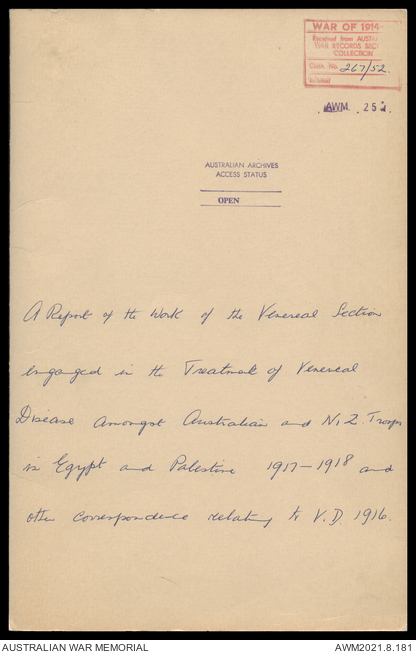 WAR OF 1914-
Received from AUSTRA
WAR RECORDS SECT
COLLECTION
No. 267/52.
AWM. 252.
AUSTRALIAN ARCHIVES
ACCESS STATUS
OPEN
A Report of the Work of the Venereal Section
engaged in the Treatment of Venereal
Disease amongst Australian and N.Z. Troops
in Egypt and Palestine 1917-1918 and
other correspondence relating to V.D. 1916.
AUSTRALIAN WAR MEMORIAL
AWM2021.8.181